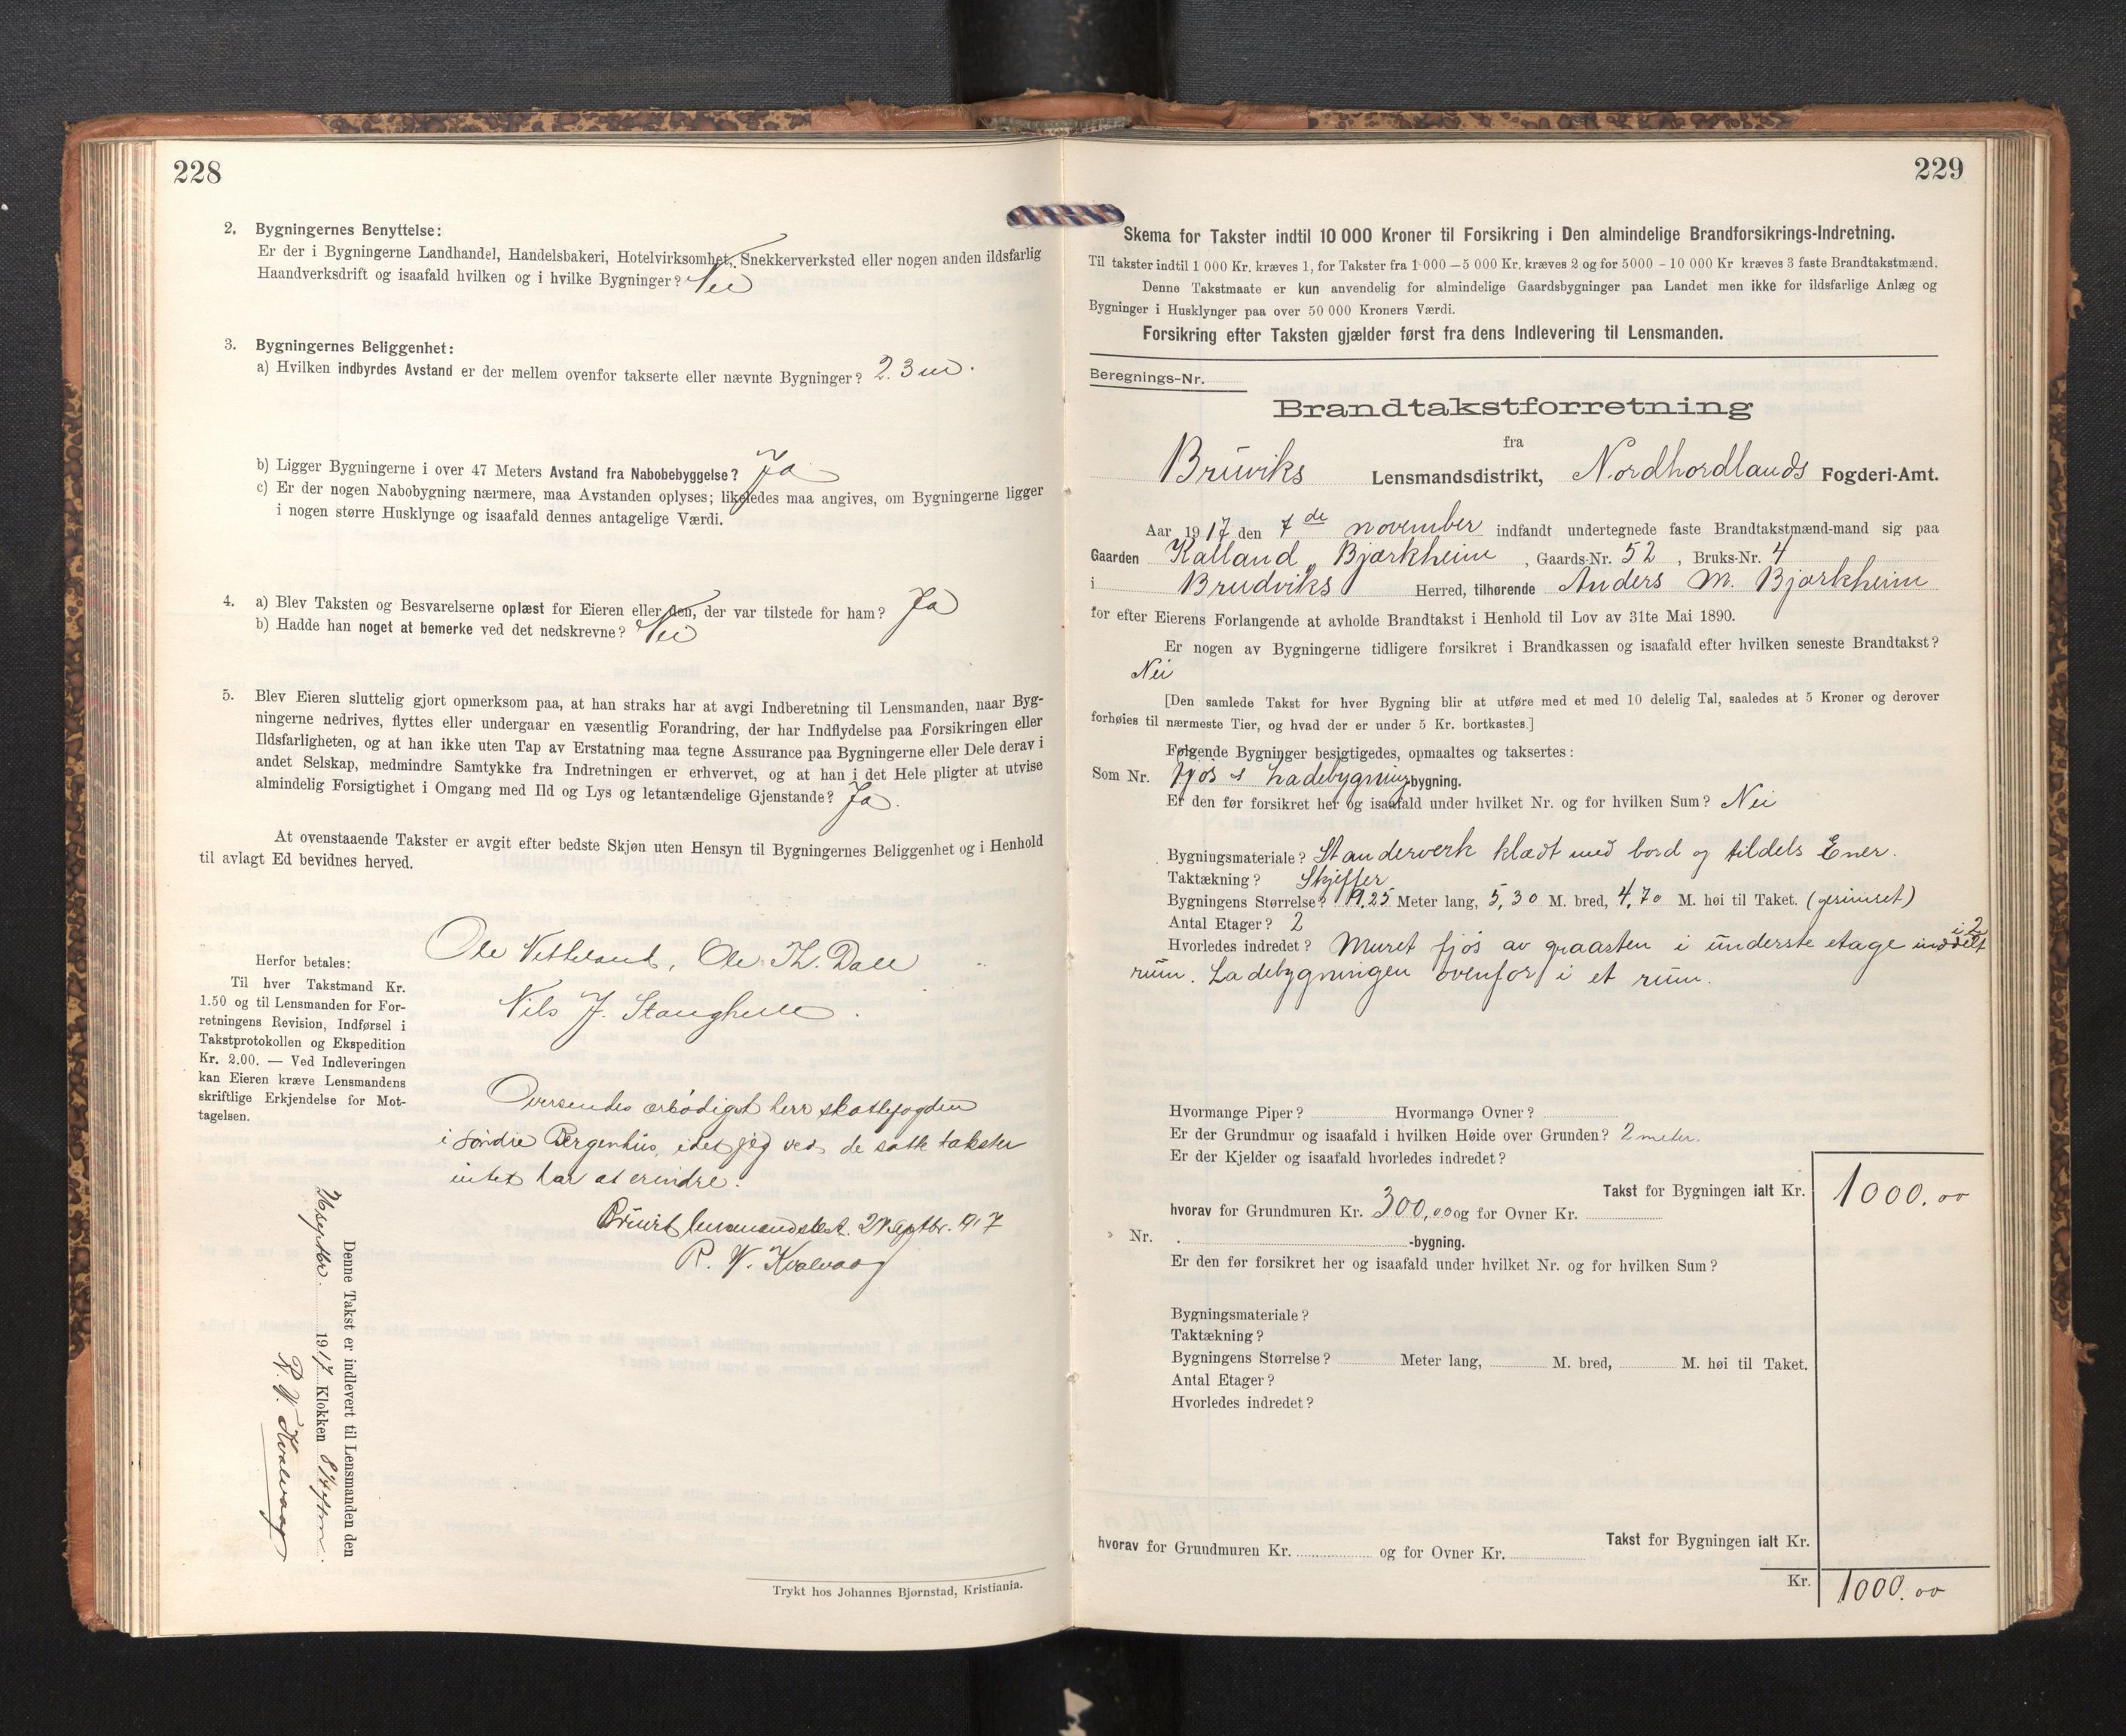 228
2. Bygningernes Benyttelse:
Er der i Bygningerne Landhandel, Handelsbakeri, Hotelvirksomhet, Snekkerverksted eller nogen anden ildsfarlig
Haandverksdrift og isaafald hvilken og i hvilke Bygninger? Nei
3. Bygningernes Beliggenhet:
a) Hvilken indbyrdes Avstand er der mellem ovenfor takserte eller nævnte Bygninger? 2.3 m.
b) Ligger Bygningerne i over 47 Meters Avstand fra Nabobebyggelse? Ja
c) Er der nogen Nabobygning nærmere, maa Avstanden oplyses; likeledes maa angives, om Bygningerne ligger
i nogen større Husklynge og isaafald dennes antagelige Værdi.
4. a) Blev Taksten og Besvarelserne oplæst for Eieren eller den, der var tilstede for ham? Ja
b) Hadde han noget at bemerke ved det nedskrevne? Nei
5. Blev Eieren sluttelig gjort opmerksom paa, at han straks har at avgi Indberetning til Lensmanden, naar Byg-
ningerne nedrives, flyttes eller undergaar en væsentlig Forandring, der har Indflydelse paa Forsikringen eller
Ildsfarligheten, og at han ikke uten Tap av Erstatning maa tegne Assurance paa Bygningerne eller Dele derav i
andet Selskap, medmindre Samtykke fra Indretningen er erhvervet, og at han i det Hele pligter at utvise
almindelig Forsigtighet i Omgang med Ild og Lys og letantændelige Gjenstande? Ja.
At ovenstaaende Takster er avgit efter bedste Skjøn uten Hensyn til Bygningernes Beliggenhet og i Henhold
til avlagt Ed bevidnes herved.
Ole Vetteland, Ole Th. Dale
Nils J. Stanghelle.
Herfor betales:
Til hver Takstmand Kr.
1.50 og til Lensmanden for For-
retningens Revision, Indførsel i
Takstprotokollen og Ekspedition
Kr. 2.00. — Ved Indleveringen
kan Eieren kræve Lensmandens
skriftlige Erkjendelse for Mot-
tagelsen.
Oversendes ærbødigst herr skattefogden
i søndre Bergenhus, idet jeg ved de satte takster
intet har at erindre.
Bruvik lensmandsbest. 27 septbr. 1917
R. W. Kvalvaag
Denne Takst er indlevert til Lensmanden den
26 septbr. 1917 Klokken 8 1/4 eftm.
R. W. Kvalvaag
Trykt hos Johannes Bjørnstad, Kristiania.
229
Skema for Takster indtil 10 000 Kroner til Forsikring i Den almindelige Brandforsikrings-Indretning.
Til takster indtil 1 000 Kr. kræves 1, for Takster fra 1 000 — 5 000 Kr. kræves 2 og for 5000 - 10 000 Kr kræves 3 faste Brandtakstmænd.
Denne Takstmaate er kun anvendelig for almindelige Gaardsbygninger paa Landet men ikke for ildsfarlige Anlæg og
Bygninger i Husklynger paa over 50 000 Kroners Værdi.
Forsikring efter Taksten gjælder først fra dens Indlevering til Lensmanden.
Beregnings-Nr.
Brandtakstforretning
fra
Bruviks Lensmandsdistrikt, Nordhordlands Fogderi-Amt.
Aar 1917 den 7de november indfandt undertegnede faste Brandtakstmænd-mand sig paa
Gaarden Kalland, Bjørkheim, Gaards-Nr. 52, Bruks-Nr. 4
i Brudviks Herred, tilhørende Anders M. Bjørkheim
for efter Eierens Forlangende at avholde Brandtakst i Henhold til Lov av 31te Mai 1890.
Er nogen av Bygningerne tidligere forsikret i Brandkassen og isaafald efter hvilken seneste Brandtakst?
Nei
[Den samlede Takst for hver Bygning blir at utføre med et med 10 delelig Tal, saaledes at 5 Kroner og derover
forhøies til nærmeste Tier, og hvad der er under 5 Kr. bortkastes.]
Følgende Bygninger besigtigedes, opmaaltes og taksertes:
Som Nr. Fjos & Ladebygning bygning.
Er den før forsikret her og isaafald under hvilket Nr. og for hvilken Sum? Nei
Bygningsmateriale? Standerverk klædt med bord og tildels Ener.
Taktækning? Skjeffer
Bygningens Størrelse? 9,25 Meter lang, 5,30 M. bred, 4,70 M. høi til Taket. (gesimset)
Antal Etager? 2
Hvorledes indredet? Muret fjøs av graasten i underste etage inddelt i 2
rum. Ladebygningen ovenfor i et rum.
Hvormange Piper? Hvormange Ovner?
Er der Grundmur og isaafald i hvilken Høide over Grunden? 2 meter.
Er der Kjelder og isaafald hvorledes indredet?
Takst for Bygningen ialt Kr. 1000.00
hvorav for Grundmuren Kr. 300,00 og for Ovner Kr.
Nr. -bygning.
Er den før forsikret her og isaafald under hvilket Nr. og for hvilken Sum?
Bygningsmateriale?
Taktækning?
Bygningens Størrelse? Meter lang, M. bred, M. høi til Taket.
Antal Etager?
Hvorledes indredet?
Takst for Bygningen ialt Kr.
hvorav for Grundmuren Kr. og for Ovner Kr.
Kr. 1000.00